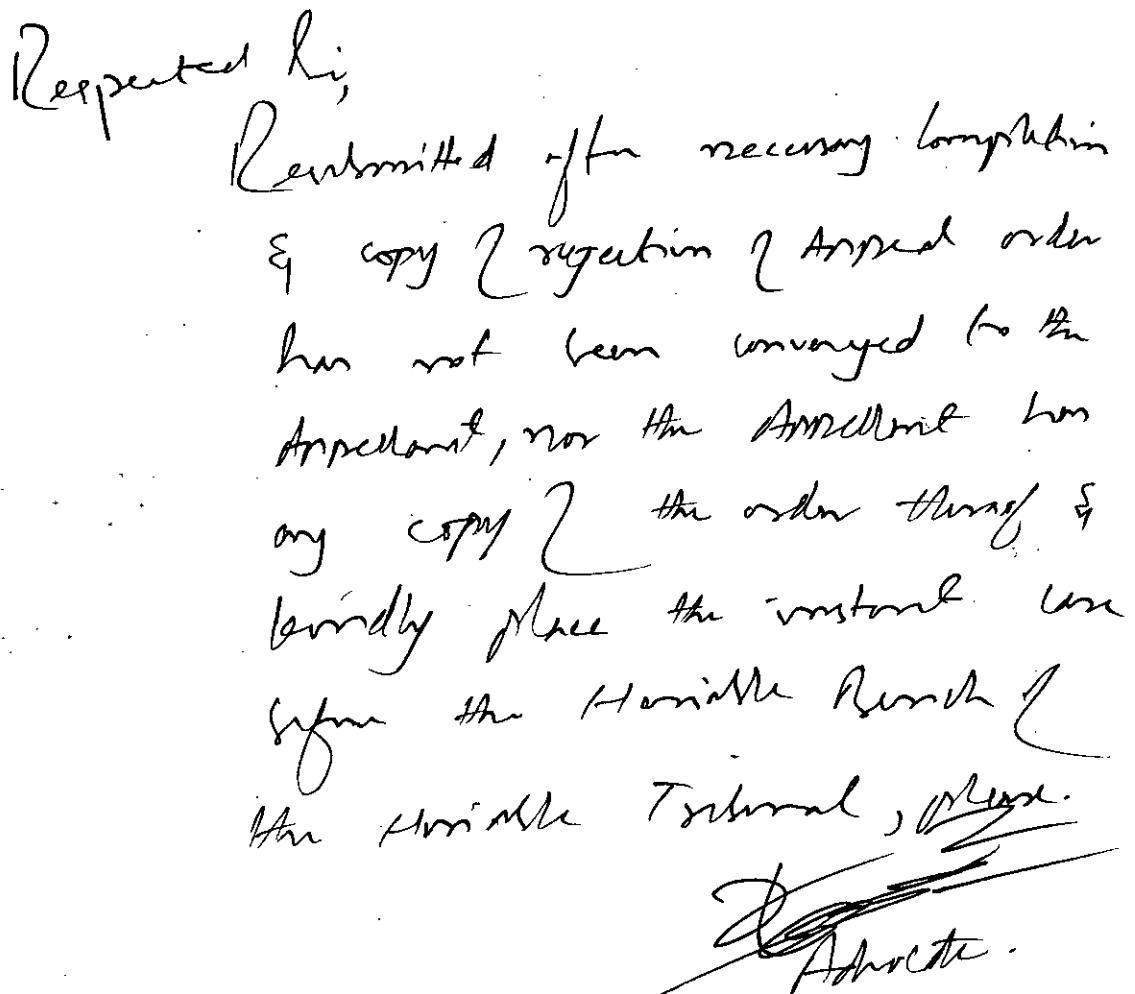 Respected Sir,
Resubmitted after necessary Completion
& copy of rejection of Appeal order
has not been conveyed to the
Appellant, nor the Appellant has
any copy of the order thereof &
kindly place the instant case
before the Hon'able Bench of
the Hon'able Tribunal, please.
Advocate.